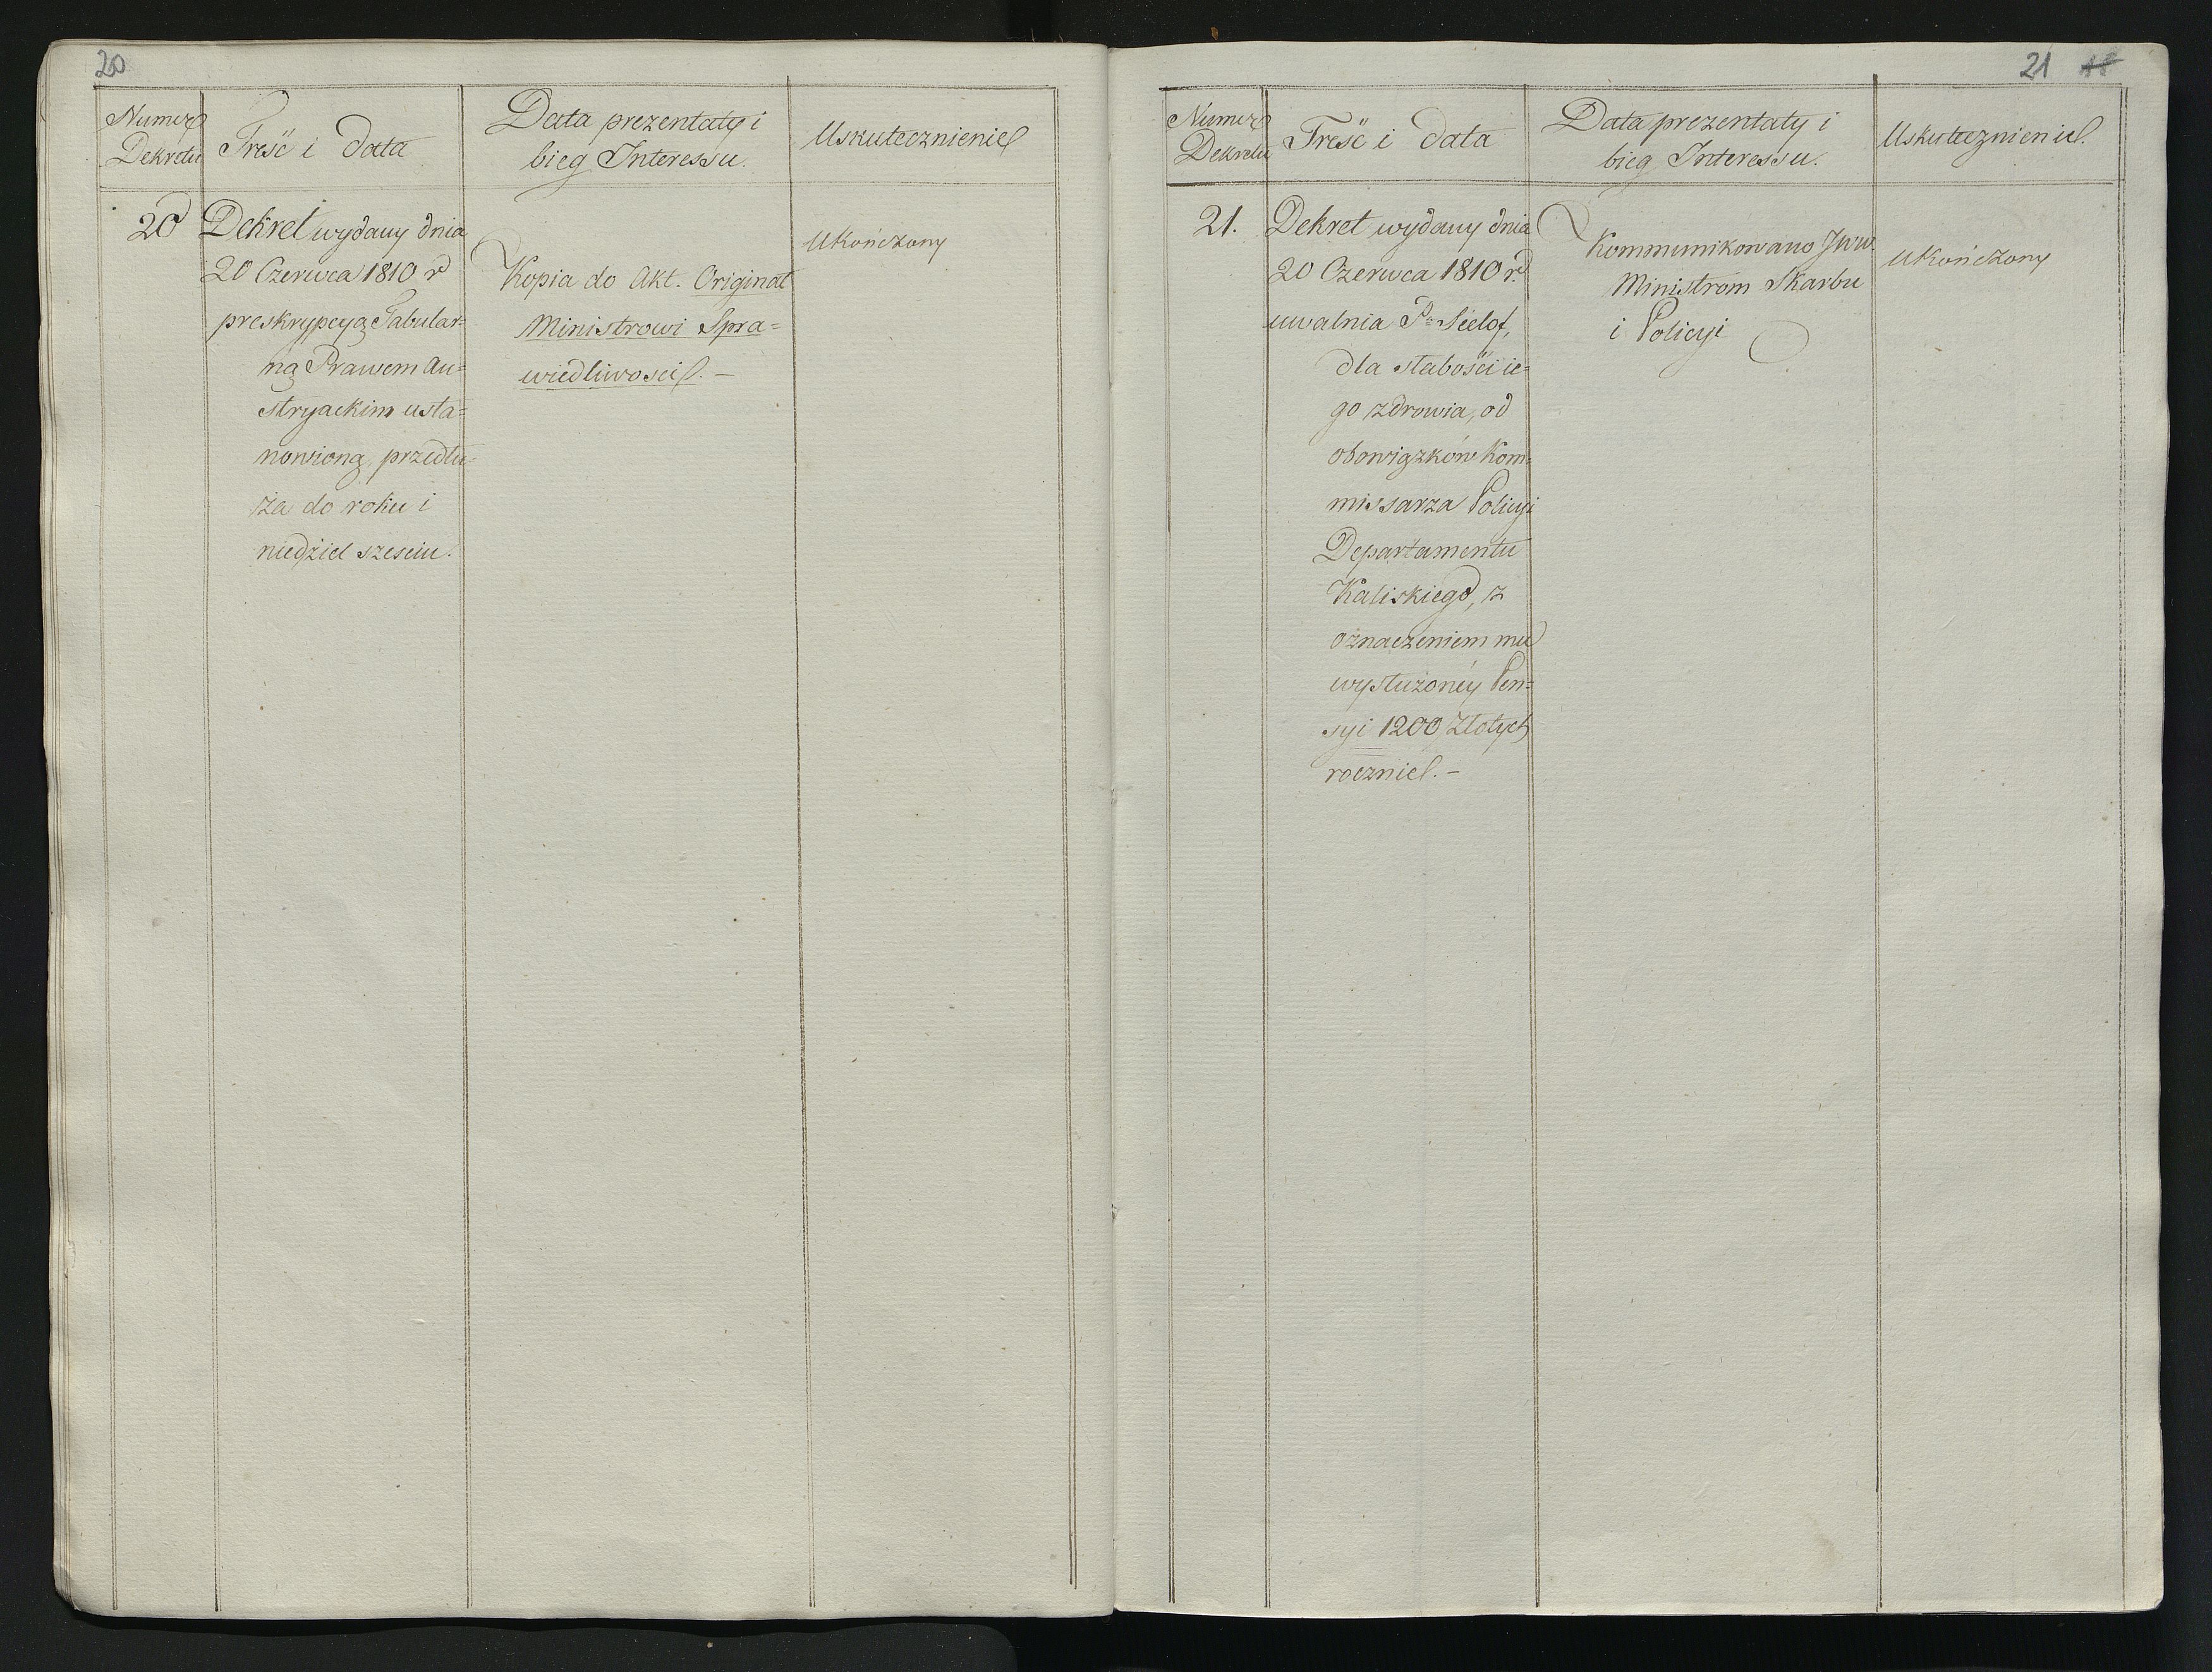 20
Numer
Dekretu
Treść i Data
Data prezentaty i
bieg Interessu.
Uskutecznienie
20
Dekret wydany dnia
20 Czerwca 1810 r
preskrypcyą Tabular=
ną Prawem Au=
stryackim usta=
nowioną, przedłu=
ża do roku i
niedziel szesciu.
Kopia do Akt. Originał
Ministrowi Spra=
wiedliwosci. –
Ukończony
21 18
Numer
Dekretu
Treść i Data
Data prezentaty i
bieg Interessu.
Uskutecznienie.
21.
Dekret wydany dnia
20 Czerwca 1810 r.
uwalnia Pa Seelof,
dla słabości ie=
go zdrowia, od
obowiązków Kom=
missarza Policyi
Departamentu
Kaliskiego, z
oznaczeniem mu
wysłużoney Pen=
syi 1200 Złotych
rocznie. –
Kommunikowano JWW
Ministrom Skarbu
i Policyi
Ukończony